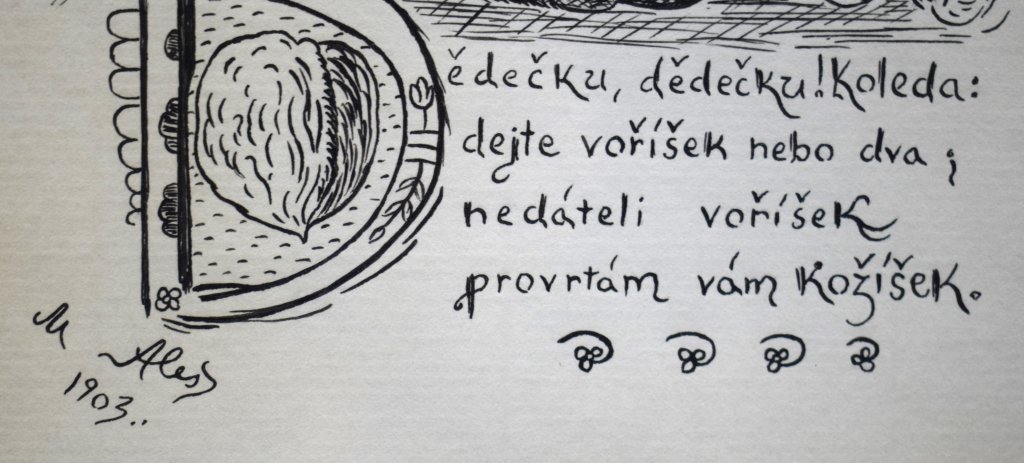 Dědečku, dědečku! Koleda:
dejte voříšek nebo dva;
nedáteli voříšek
provrtám vám kožíšek.
M Aleš
1903..